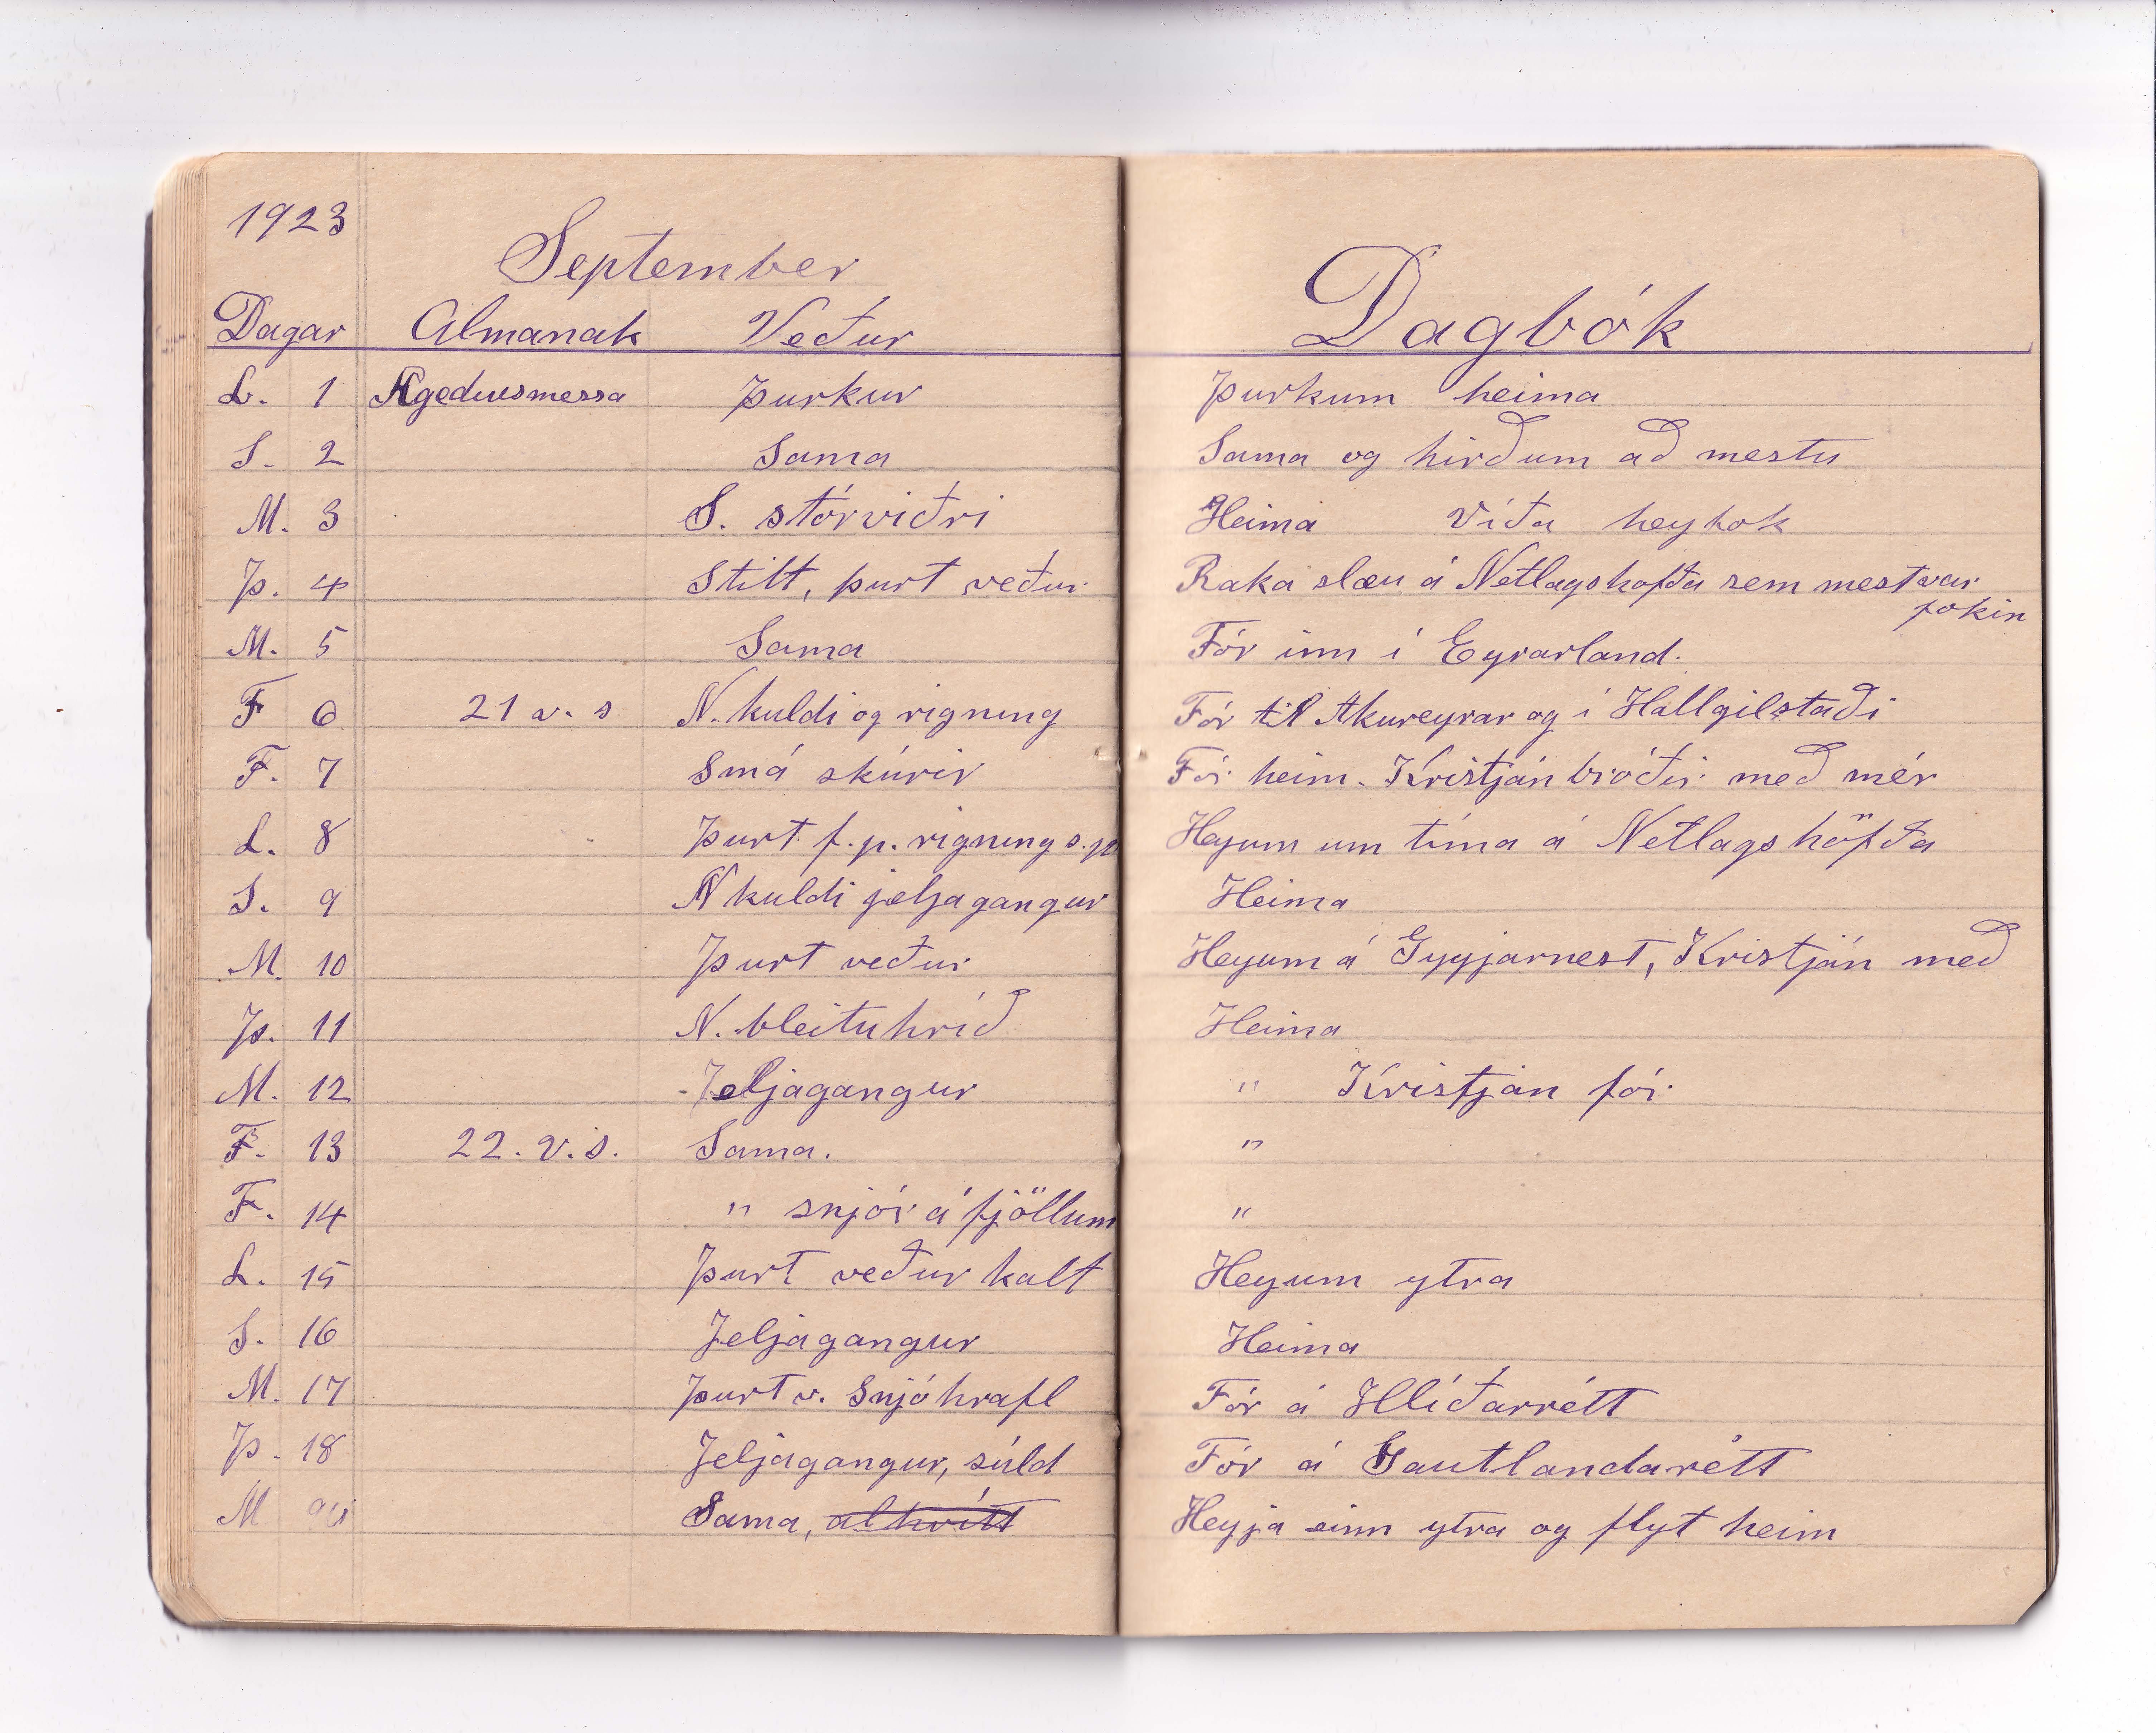 1923
September
Dagar Almanak Veður Dagbók
L. 1 Ægedusmessa Þurkur Þurkum heima
S. 2 Sama Sama og hirðum að mestu
M. 3 S. stórviðri Heima Víða heyfok
Þ. 4 Stilt, þurt veður Raka slæu á Netlagshofða sem mest var
fokin
M. 5 Sama Fór inn í Eyrarland.
F 6 21 v. s N. kuldi og rigning Fór til Akureyrar og í Hallgilstaði
F. 7 Smá skúrir Fór heim. Kristján bróðir með mér
L. 8 Þurt f.p. rigning s.p Heyum um tíma á Netlagshöfða
S. 9 N kuldi jeljagangur Heima
M. 10 Þurt veður Heyum á Gygjarnest, Kristján með
Þ. 11 N. bleituhríð Heima
M. 12 Jeljagangur " Kristján fór
F. 13 22. v. s. Sama. "
F. 14 " snjór á fjöllum "
L. 15 Þurt veður kalt Heyum ytra
S. 16 Jeljagangur Heima
M. 17 Þurt v. Snjóhrafl Fór á Hlíðarrétt
Þ. 18 Jeljagangur, súld Fór á Gautlandarétt
M Sama, alhvítt Heyja einn ytra og flyt heim